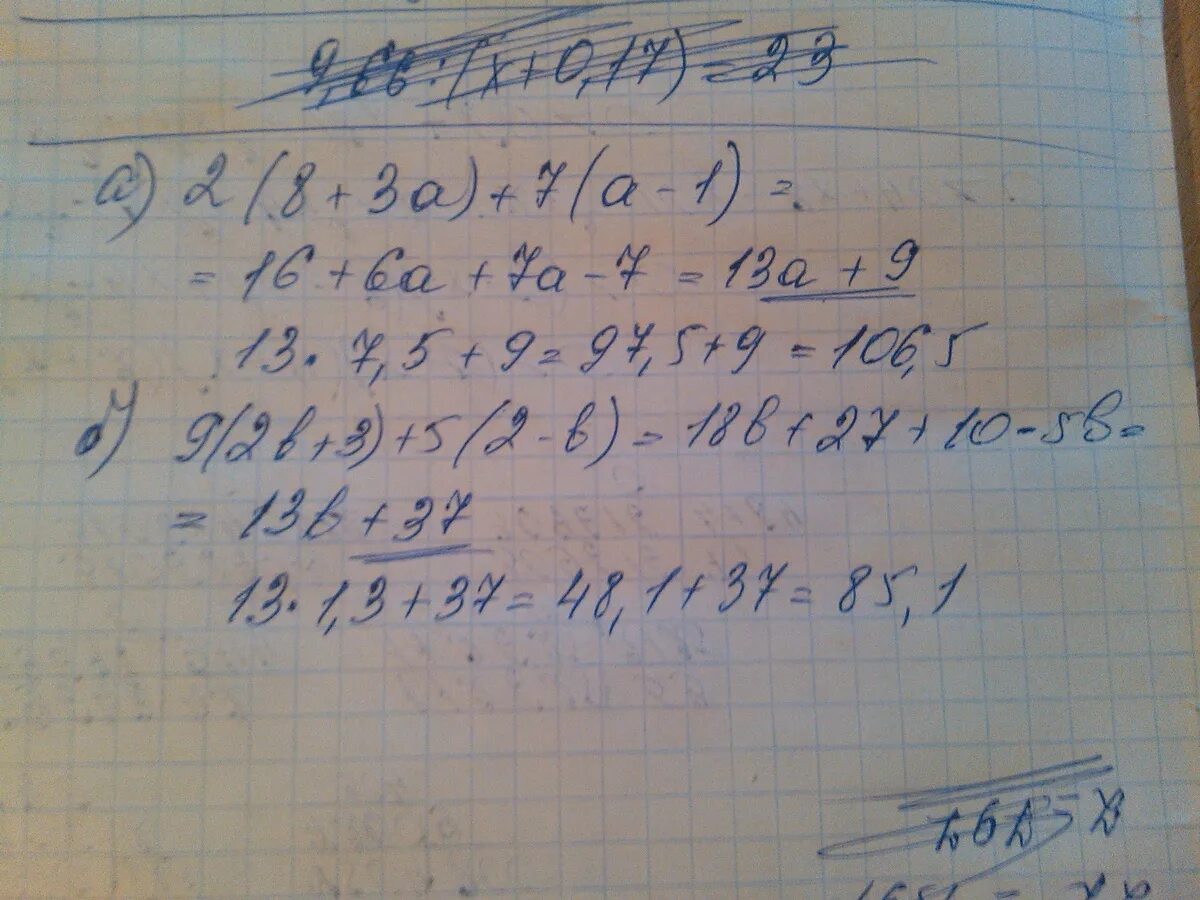 9,66:(x+0,17)=23
а) 2(8+3а)+7(а-1)=
=16+6а+7а-7=13а+9
13·7,5+9=97,5+9=106,5
б) 9(2b+3)+5(2-b)=18b+27+10-5b=
=13b+37
13·1,3+37=48,1+37=85,1